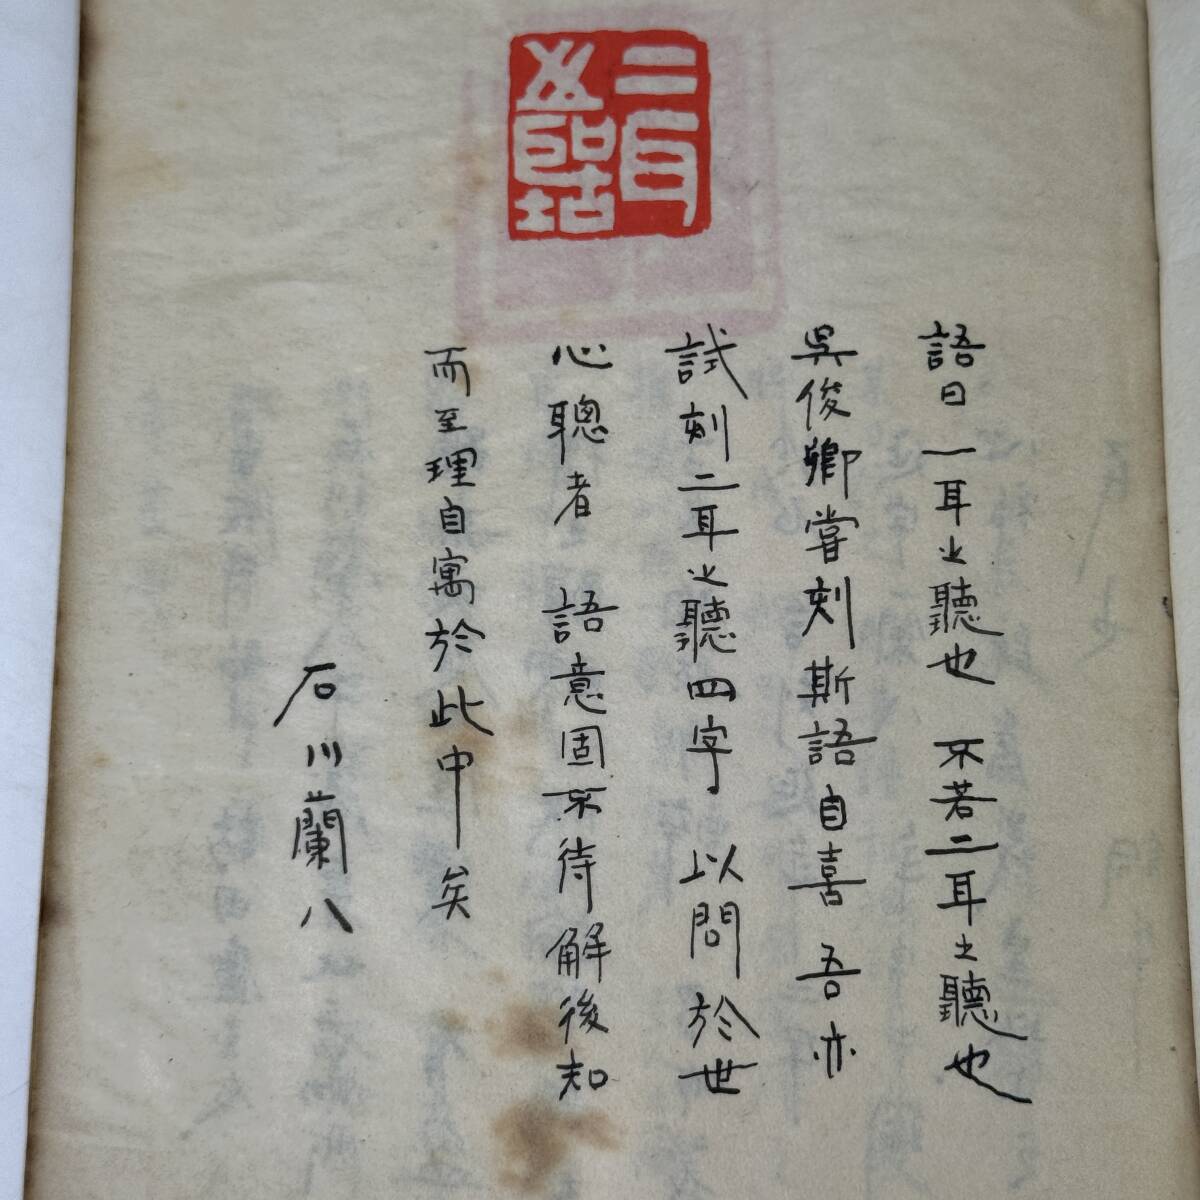 二耳之聽
語曰一耳之聽也 不若二耳之聽也
吳俊卿嘗刻斯語自喜 吾亦
試刻二耳之聽四字 以問於世
心聰者 語意固不待解後知
而至理自寓於此中矣
石川蘭八